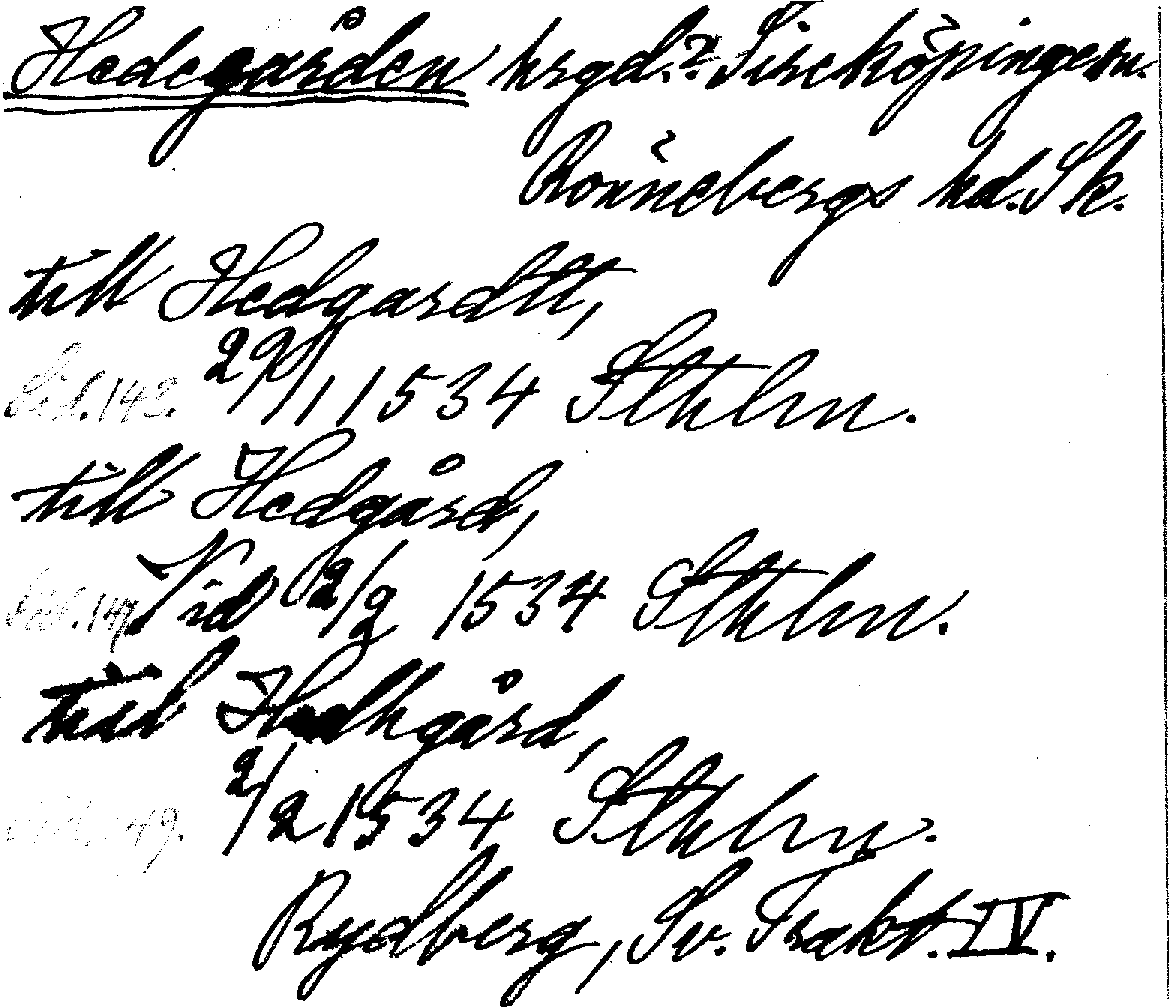 Hedegården hrgd.? Sireköpinge sn.
Rönnebergs hd. Sk.
till Hedgardtt,
Sid. 142. 29/1 1534 Sthlm.
till Hedgård,
Sid. 147. Vid 2/2 1534 Sthlm.
till Hedhgård,
Sid. 149. 2/2 1534 Sthlm.
Rydberg, Sv. Trakt. IV.